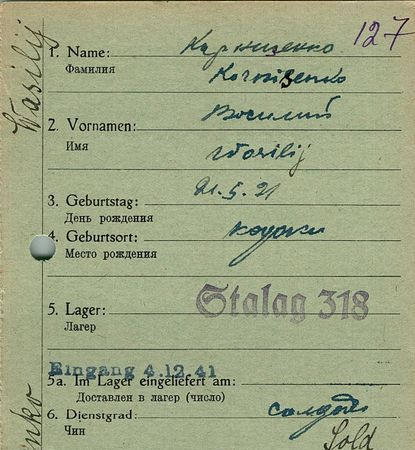 127
1. Name:
Фамилия
2. Vornamen: Восилий
Имя Wasilij
3. Geburtstag: 21.5.21
День рождения
4. Geburtsort:
Место рождения
5. Lager: Stalag 318
Лагер
Eingang 4.12.41
5a. Im Lager eingeliefert am:
Доставлен в лагер (число)
6. Dienstgrad: солдат
Чин
Sold
Wasilij